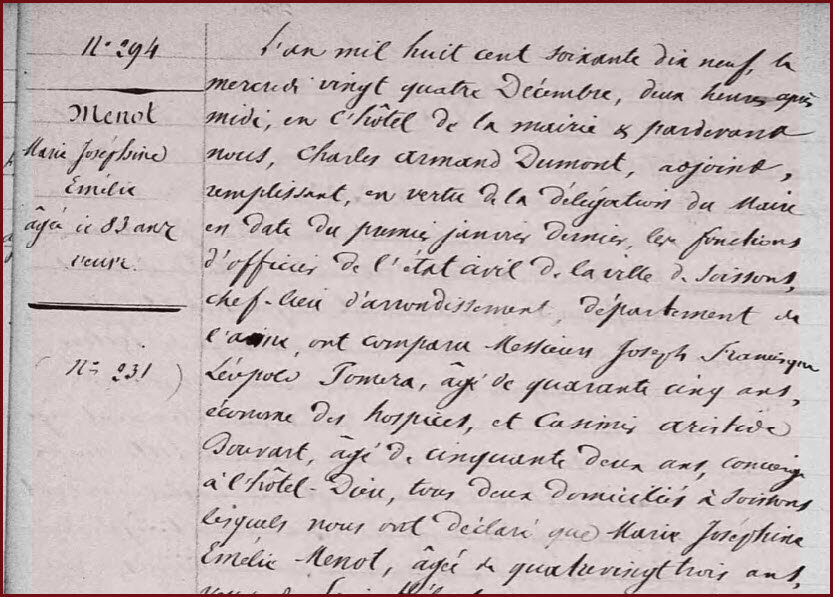 N° 294
Menot
Marie Joséphine
Emélie
âgée de 83 ans
veuve.
N° 231
L'an mil huit cent soixante dix neuf, le
mercredi vingt quatre Décembre, deux heures après
midi, en l'hôtel de la mairie & pardevant
nous, Charles Armand Dumont, adjoint,
remplissant, en vertu de la délégation du Maire
en date du premier janvier dernier, les fonctions
d'officier de l'état civil de la ville de Soissons,
chef-lieu d'arrondissement, département de
l'aisne, ont comparu Messieurs Joseph Francisque
Léopold Tomera, âgé de quarante cinq ans,
économe des hospices, et Casimir Aristide
Bouvart, âgé de cinquante deux ans, concierge
à l'hôtel-Dieu, tous deux domiciliés à Soissons
lesquels nous ont déclaré que Marie Joséphine
Emélie Menot, âgée de quatrevingt trois ans,